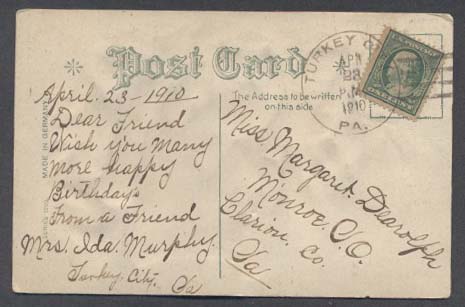 Post Card
The Address to be written
on this side
MADE IN GERMANY
TURKEY C
APR
23
P.M.
1910
PA.
April. 23-1910
Dear Friend
Wish you Many
More happy
Birthdays
From a Friend
Mrs. Ida. Murphy.
Turkey. City. Pa
Miss. Margaret. Dearolph
Monroe. P.O.
Clarion. Co.
Pa